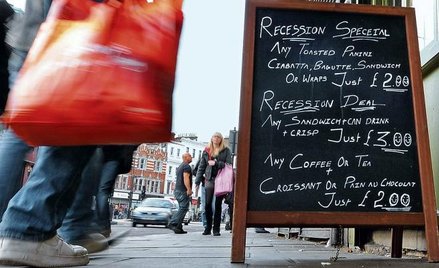 RECESSION SPECEIAL
ANY TOASTED PANINI
CIABATTA, BAGUTTE, SANDWICH
OR WRAPS JUST £2.00
RECESSION DEAL
ANY SANDWICH+CAN DRINK
+ CRISP JUST £3.00
ANY COFFEE OR TEA
+
CROISSANT OR PAIN AU CHOCOLAT
JUST £2.00